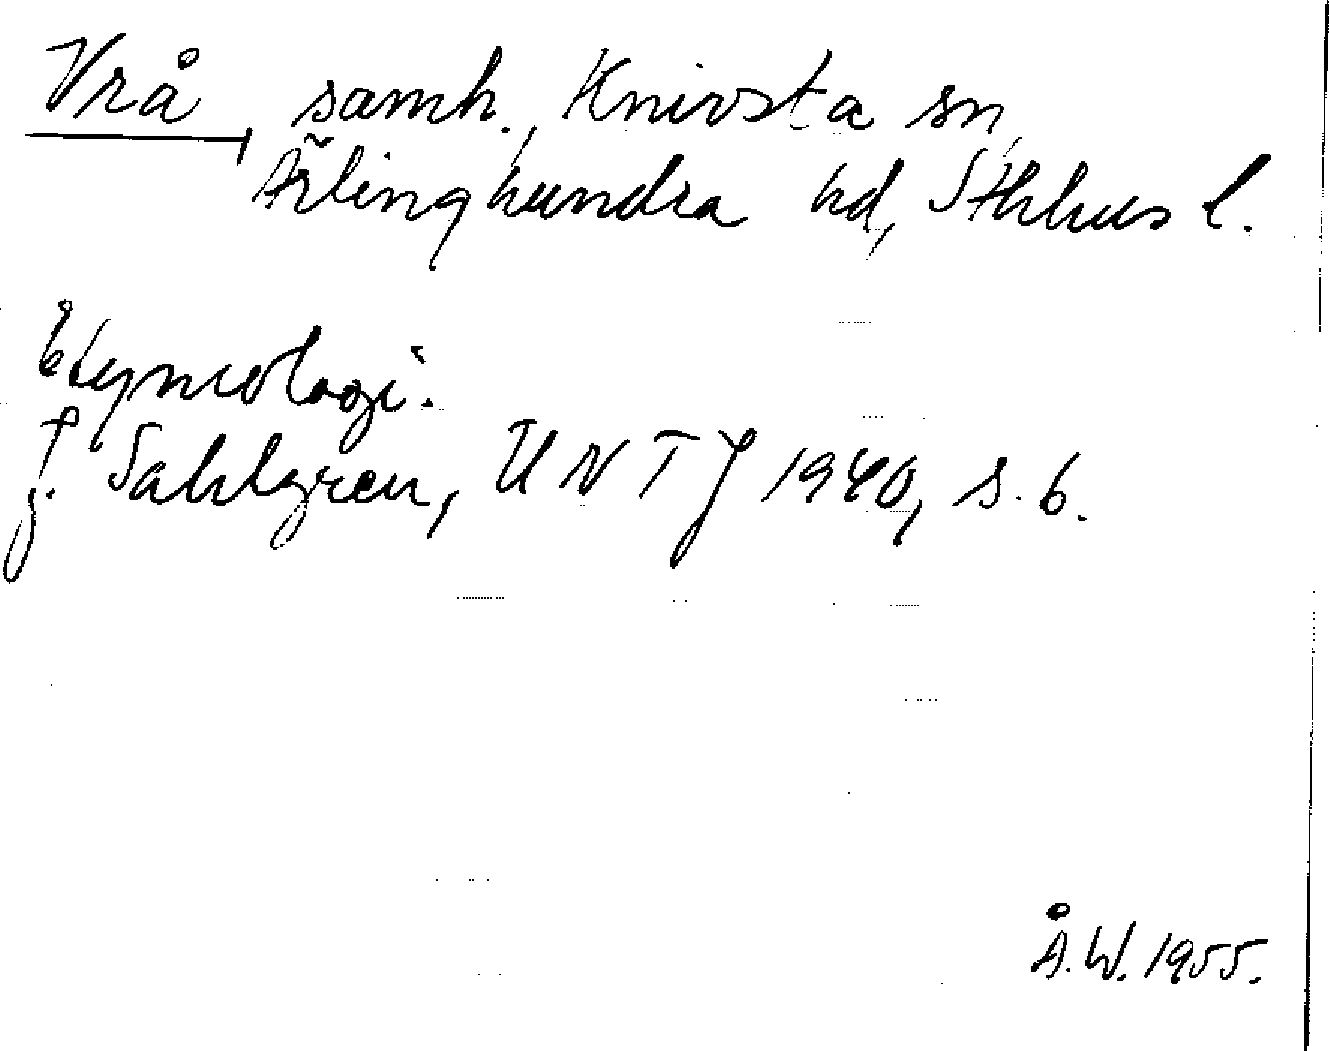 Vrå, samh., Knivsta sn,
Ärlinghundra hd, Sthlms l.
Etymologi.
J. Sahlgren, UNT J 1940, s. 6.
Å.W. 1955.